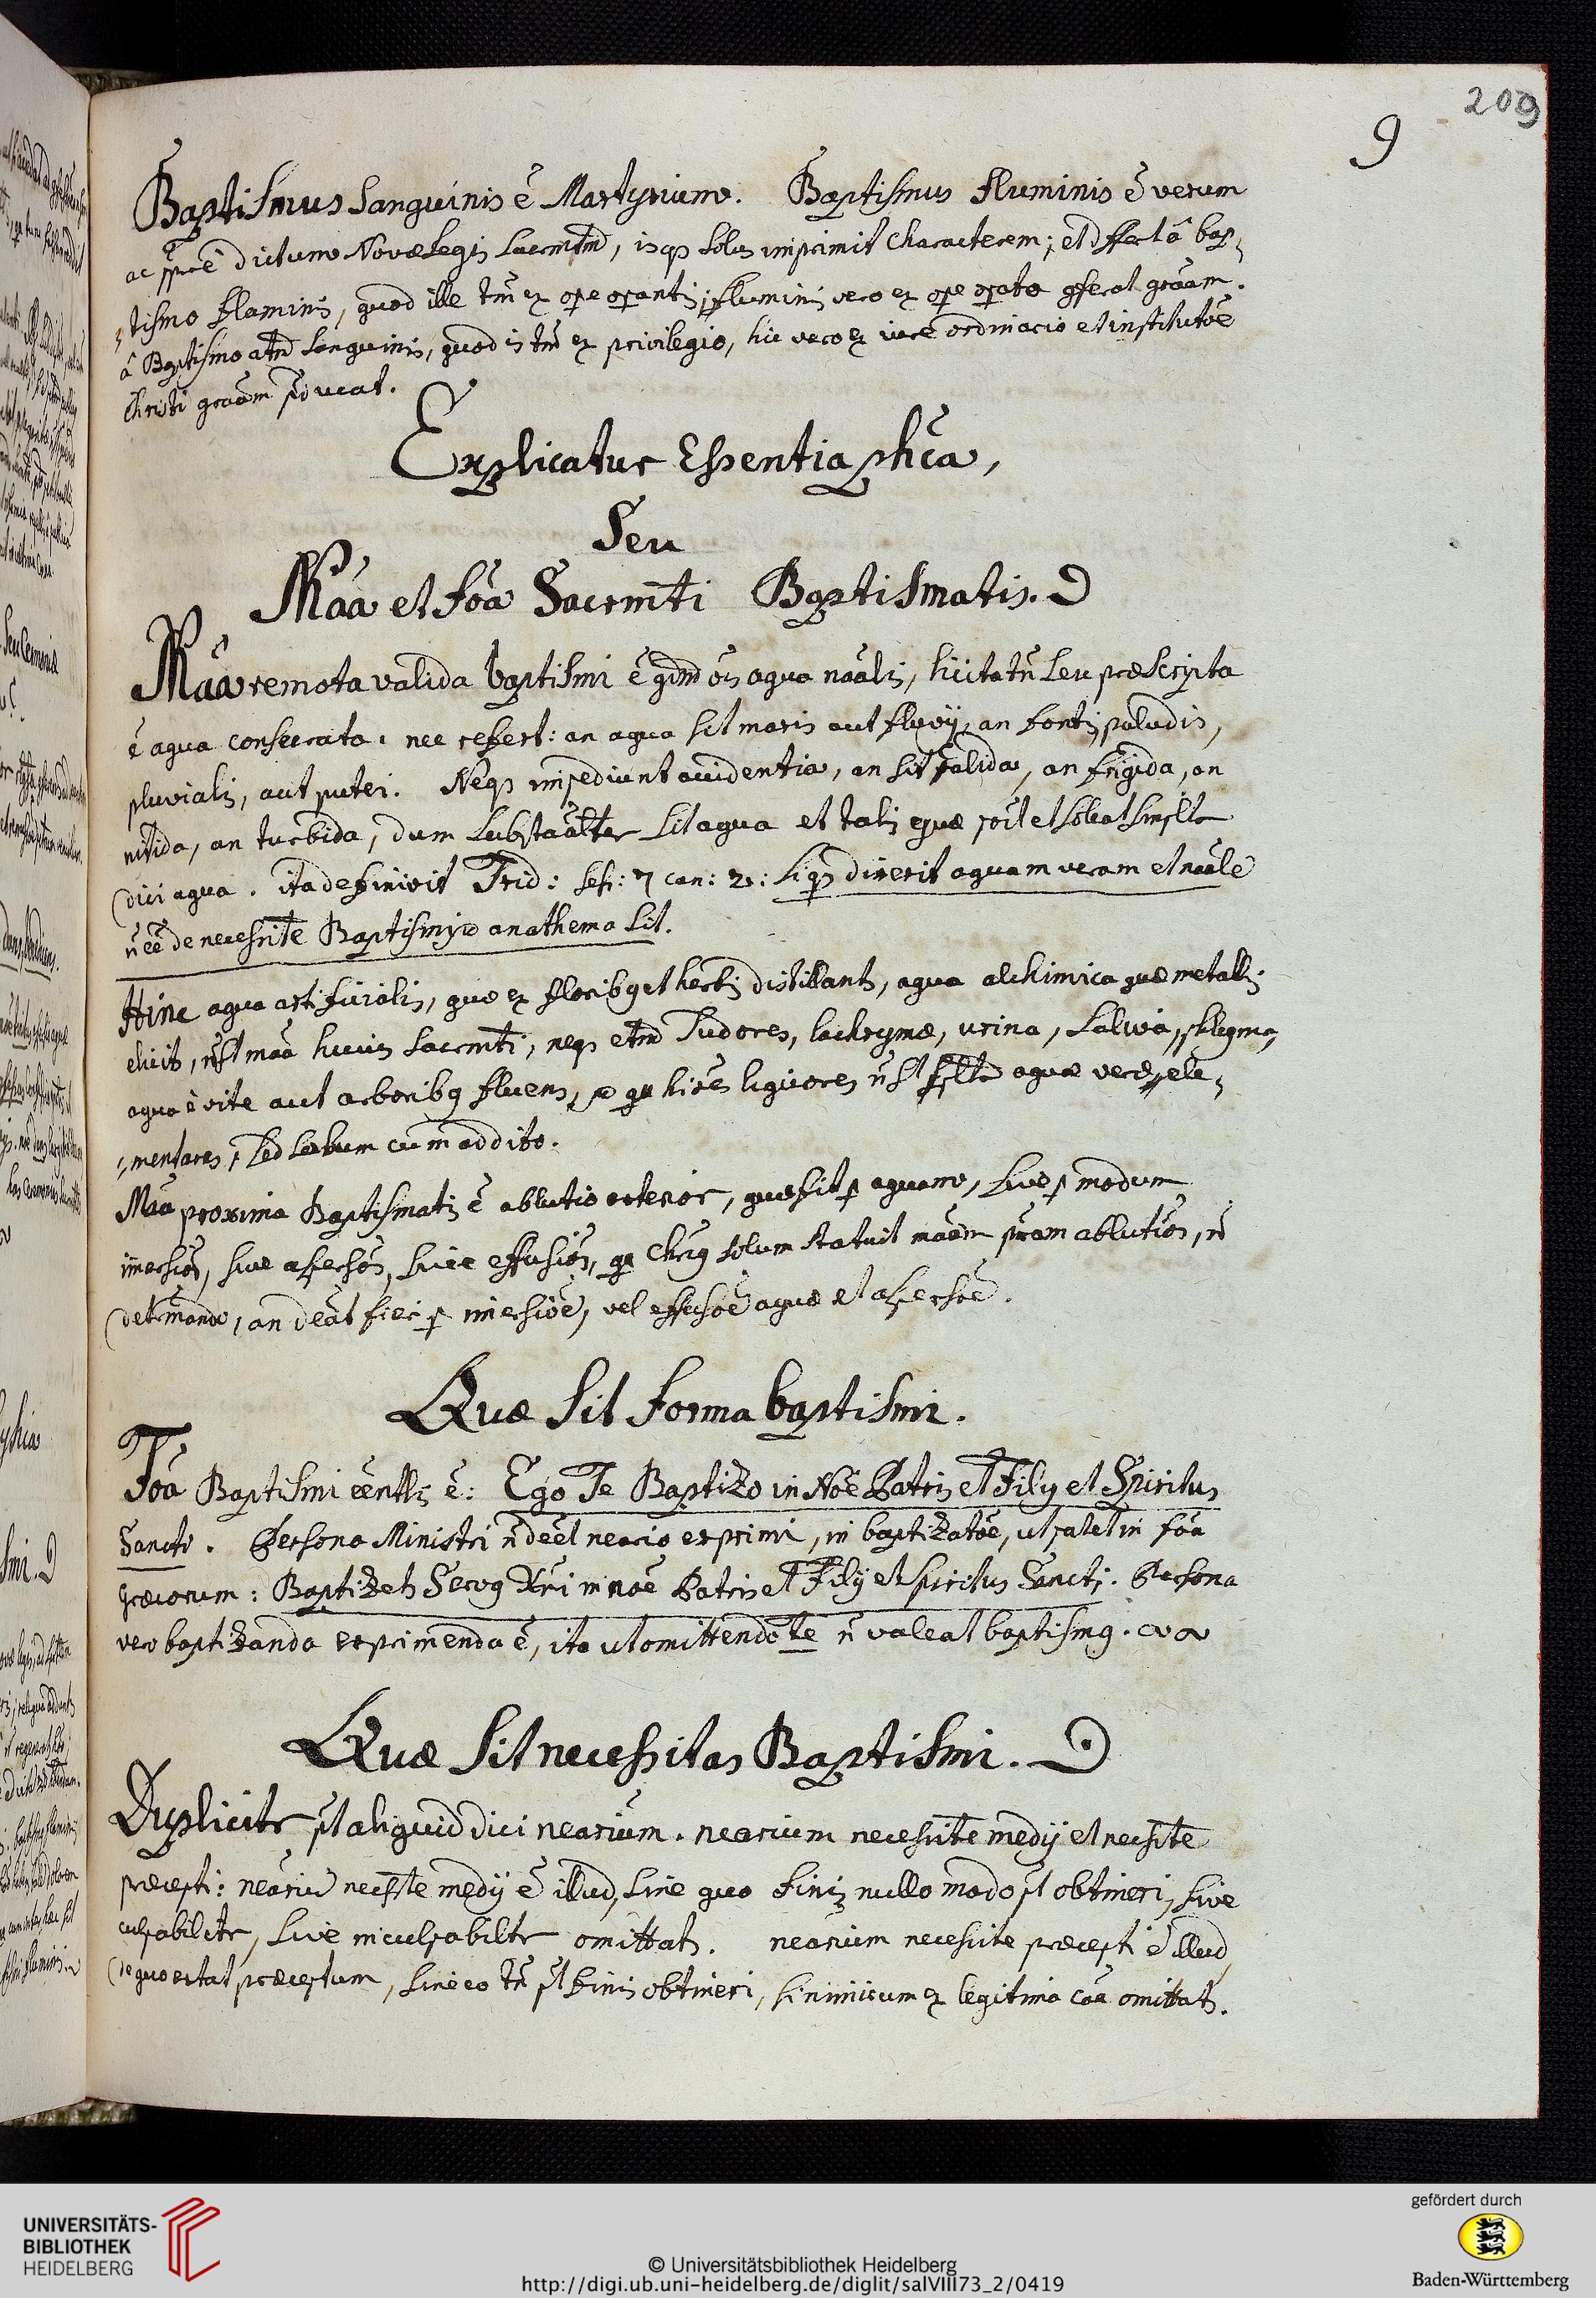 209
9
Baptismus sanguinis ē Martyrium. Baptismus fluminis ē verum
ac dictum Novæ Legis Sacrmtm, isq3 solus imprimit characterem; et differt â bap,
,tismo flaminis, quod ille tm̄ ex ope operantis, fluminis vero ex ope operato gferat grāam.
â Baptismo atm̄ sanguinis, quod is tm̄ ex privilegio, hic vero ex iure ordinario et institutōe
Christi grāam pōucat.
Explicatur Essentia phīca,
Seu
Māa et foā Sacrmti Baptismatis.
Māa remota valida baptismi ē oīs aqua nāalis, licita tn̄ seu præscripta
ē aqua consecrata. nec refert: an aqua sit maris aut fluvij, an fontis, paludis,
pluvialis, aut putei. Neq3 impediunt accidentia, an sit calida, an frigida, an
nitida, an turbida, dum substāalter sit aqua et talis quæ possit et soleat simplr
dici aqua. ita definivit Trid: sess: 7 can: 2: siqs dixerit aquam veram et nāale
n̄ eē de necessite Baptismi anathema sit.
Hinc aqua artificialis, quæ ex floribq et herbis distillants, aqua alchimica quæ metallis
elicits, n̄ st māa huius sacrmti, neq3 etm̄ sudores, lachrymæ, urina, saliva, phlegma,
aqua è vite aut arboribq fluens, qa hi oēs liquores n̄ st aquæ veræ ele,
,mentares, sed cum addito.
Māa proxima Baptismatis ē ablutio exterior, quæ fit p aquam, sive p modum
im̄ersiōis, sive aspersōis, sive effusiōis, qa Chrisq solum statuit māam ablutiōis, n̄
detrmando, an deāt fieri p im̄ersiōē, vel effusōē aquæ et aspersōē.
Quæ sit forma baptismi.
Foā Baptismi ēentls ē: Ego Te Baptizo in Nōē Patris et Filij et Spiritus
Sancti. Persona Ministri n̄ deēt neārio exprimi, in baptizatōē, ut patet in foā
græcorum: Baptizets Servq Xti in nōē Patris et Filij et Spiritus Sancti. Persona
vero baptizanda exprimenda ē, ita ut omittendo te n̄ valeat baptismq.
Quæ sit necessitas Baptismi.
Dupliciter pt aliquid dici neārium. neārium necessite medij et necssite
præcepti: neārium necssite medij ē illud, sine quo finis nullo modo pt obtineri, sive
culpabilitr, sive inculpabilitr omittats. neārium necessite præcepti ē illud,
de quo extat præceptum, sine eo tn̄ pt finis obtineri, si nimirum ex legitima cāa omittats.
UNIVERSITÄTS-
BIBLIOTHEK
HEIDELBERG
© Universitätsbibliothek Heidelberg
http://digi.ub.uni-heidelberg.de/diglit/salVIII73_2/0419
gefördert durch
Baden-Württemberg